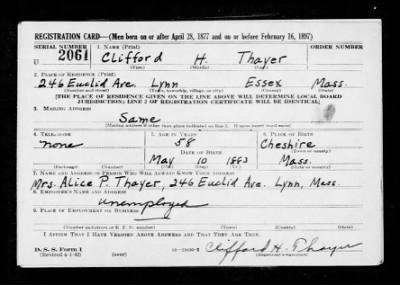 REGISTRATION CARD—(Men born on or after April 28, 1877 and on or before February 16, 1897)
SERIAL NUMBER 1. NAME (Print) ORDER NUMBER
U 2061 Clifford H. Thayer
(First) (Middle) (Last)
2. PLACE OF RESIDENCE (Print)
246 Euclid Ave. Lynn Essex Mass.
(Number and street) (Town, township, village, or city) (County) (State)
[THE PLACE OF RESIDENCE GIVEN ON THE LINE ABOVE WILL DETERMINE LOCAL BOARD
JURISDICTION; LINE 2 OF REGISTRATION CERTIFICATE WILL BE IDENTICAL]
3. MAILING ADDRESS
Same
[Mailing address if other than place indicated on line 2. If same insert word same]
4. TELEPHONE 5. AGE IN YEARS 6. PLACE OF BIRTH
none 58 Cheshire
DATE OF BIRTH (Town or county)
May 10 1883 Mass.
(Exchange) (Number) (Mo.) (Day) (Yr.) (State or country)
7. NAME AND ADDRESS OF PERSON WHO WILL ALWAYS KNOW YOUR ADDRESS
Mrs. Alice P. Thayer, 246 Euclid Ave. Lynn, Mass.
8. EMPLOYER'S NAME AND ADDRESS
Unemployed
9. PLACE OF EMPLOYMENT OR BUSINESS
(Number and street or R. F. D. number) (Town) (County) (State)
I AFFIRM THAT I HAVE VERIFIED ABOVE ANSWERS AND THAT THEY ARE TRUE.
D. S. S. Form 1
(Revised 4-1-42) (over) Clifford H. Thayer
(Registrant's signature)